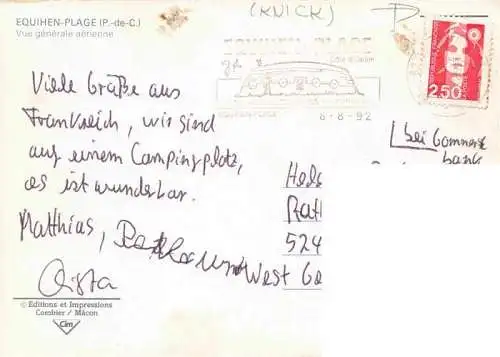 EQUIHEN-PLAGE (P.-de-C.)
Vue générale aérienne
(KNICK)
EQUIHEN - PLAGE
Côte d'Opale
8-8-92
2,50
Viele Grüße aus
Frankreich, wir sind
auf einem Campingplatz,
es ist wunderbar.
Matthias,
Christa
bei Commerz
bank
Hel
Rat
524
West Ge
© Editions et Impressions
Combier / Mâcon
Cim